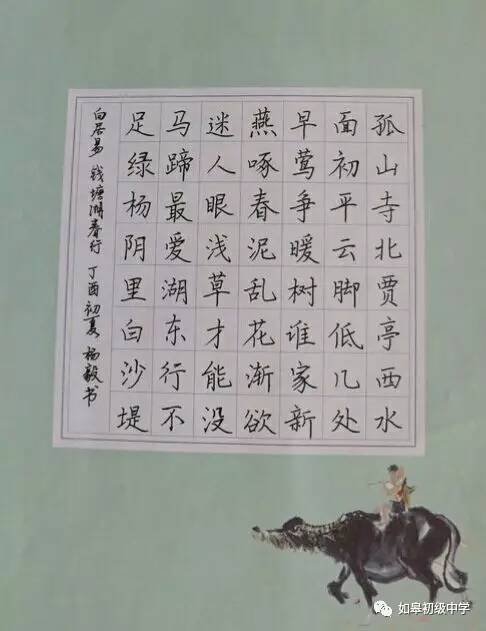 孤山寺北贾亭西水
面初平云脚低几处
早莺争暖树谁家新
燕啄春泥乱花渐欲
迷人眼浅草才能没
马蹄最爱湖东行不
足绿杨阴里白沙堤
白居易 钱塘湖春行 丁酉初夏 杨毅书
如皋初级中学